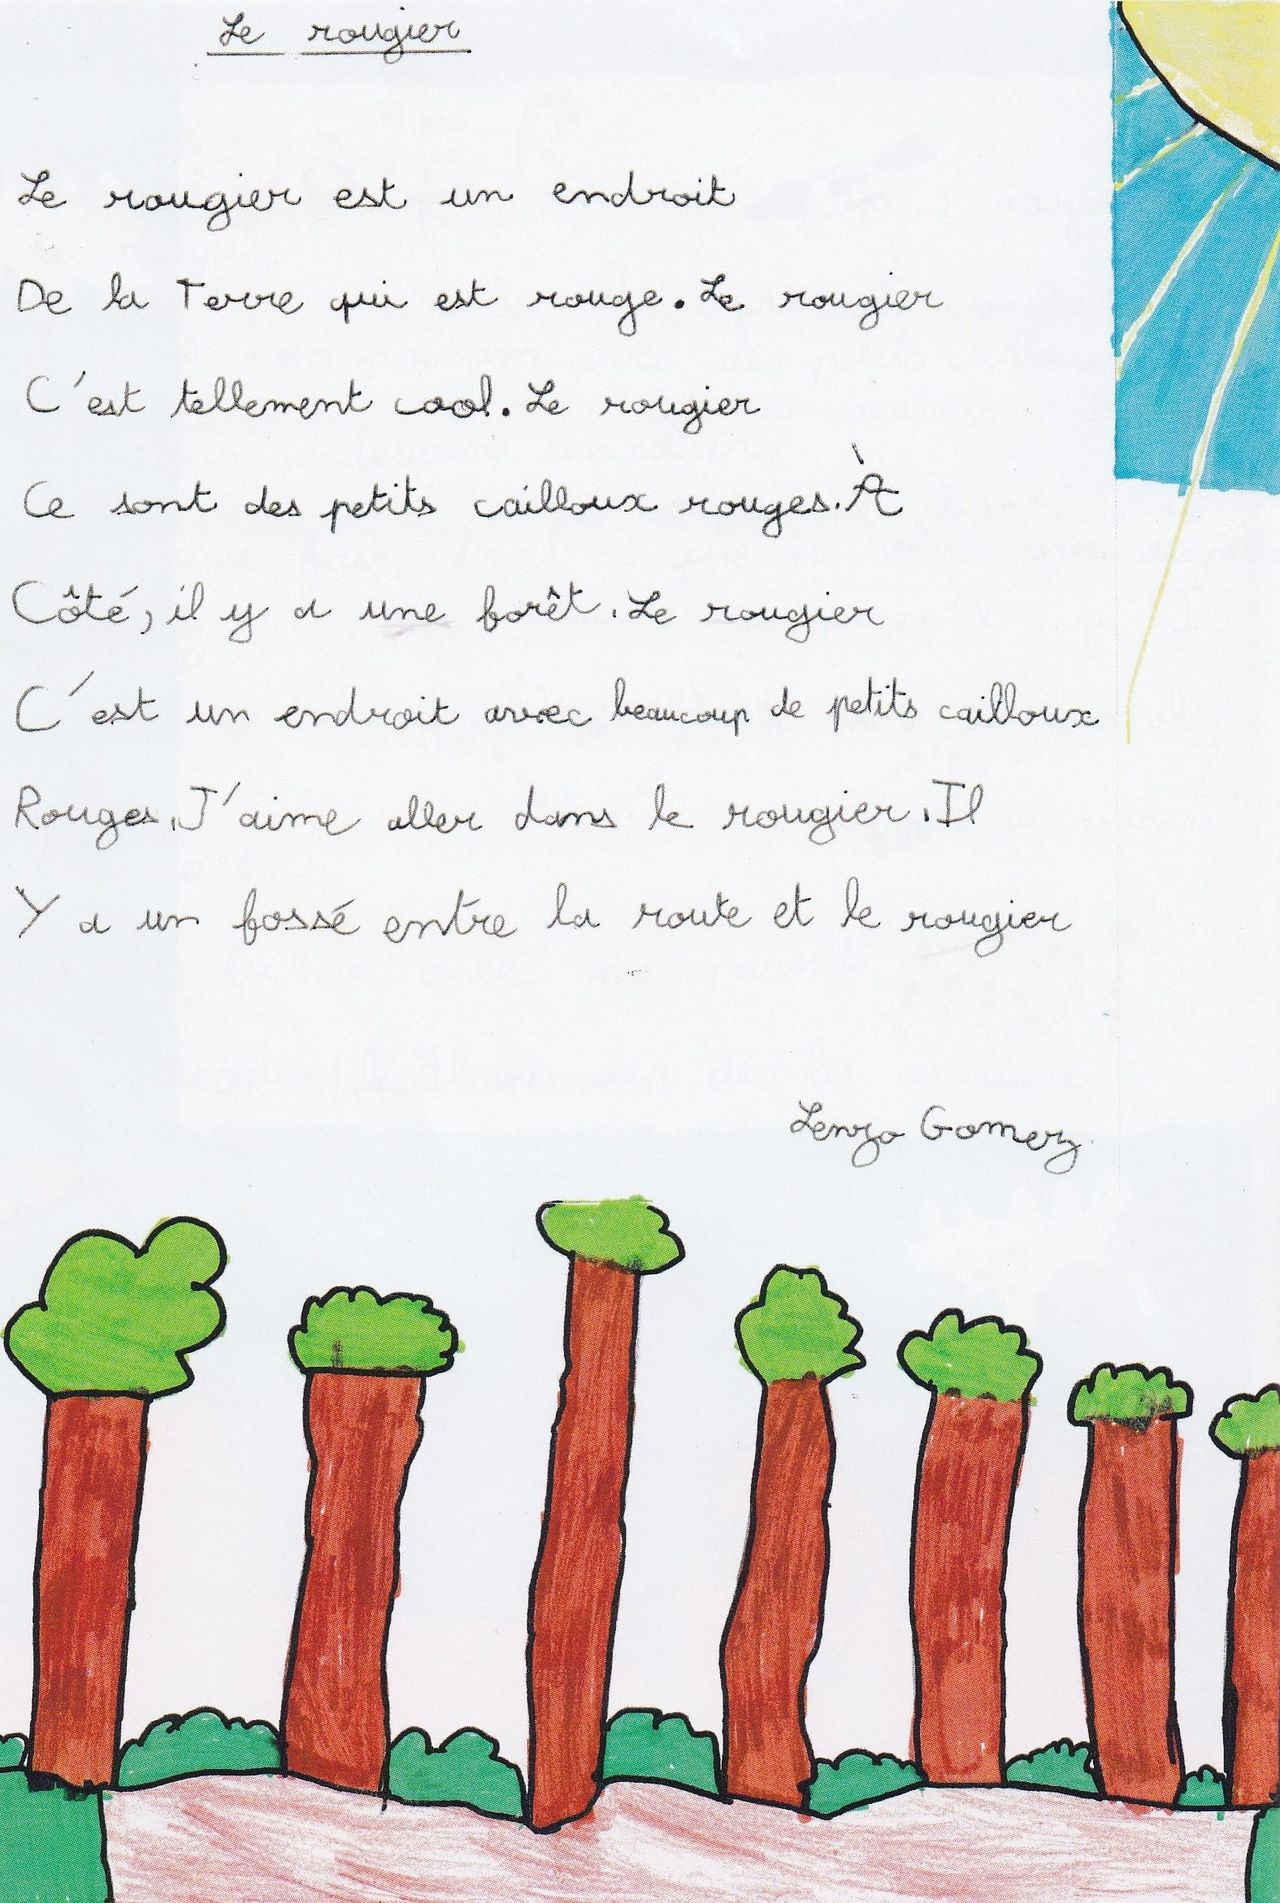 Le rougier
Le rougier est un endroit
De la Terre qui est rouge. Le rougier
C'est tellement cool. Le rougier
Ce sont des petits cailloux rouges. À
Côté, il y a une forêt. Le rougier
C'est un endroit avec beaucoup de petits cailloux
Rouges. J'aime aller dans le rougier. Il
Y a un fossé entre la route et le rougier
Lenzo Gomez